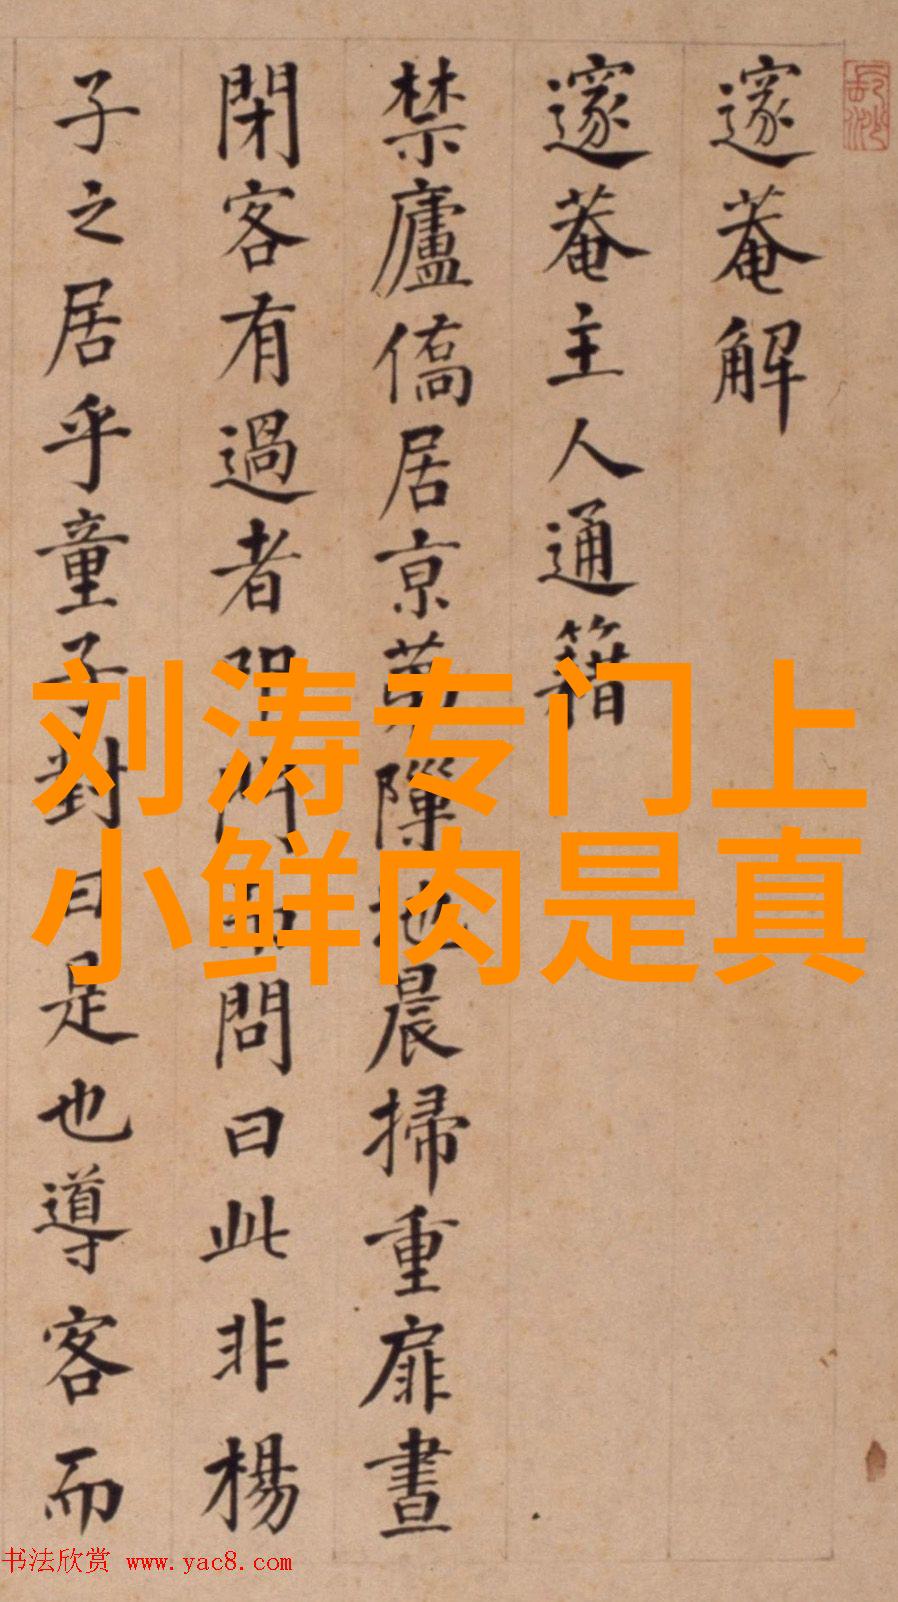 邃菴解
邃菴主人通籍
禁廬僑居京苐隟地晨掃重扉晝
閉客有過者叩門而問曰此非楊
子之居乎童子對曰是也導客而
刘涛专门上
小鲜肉是真
书法欣赏 www.yac8.com